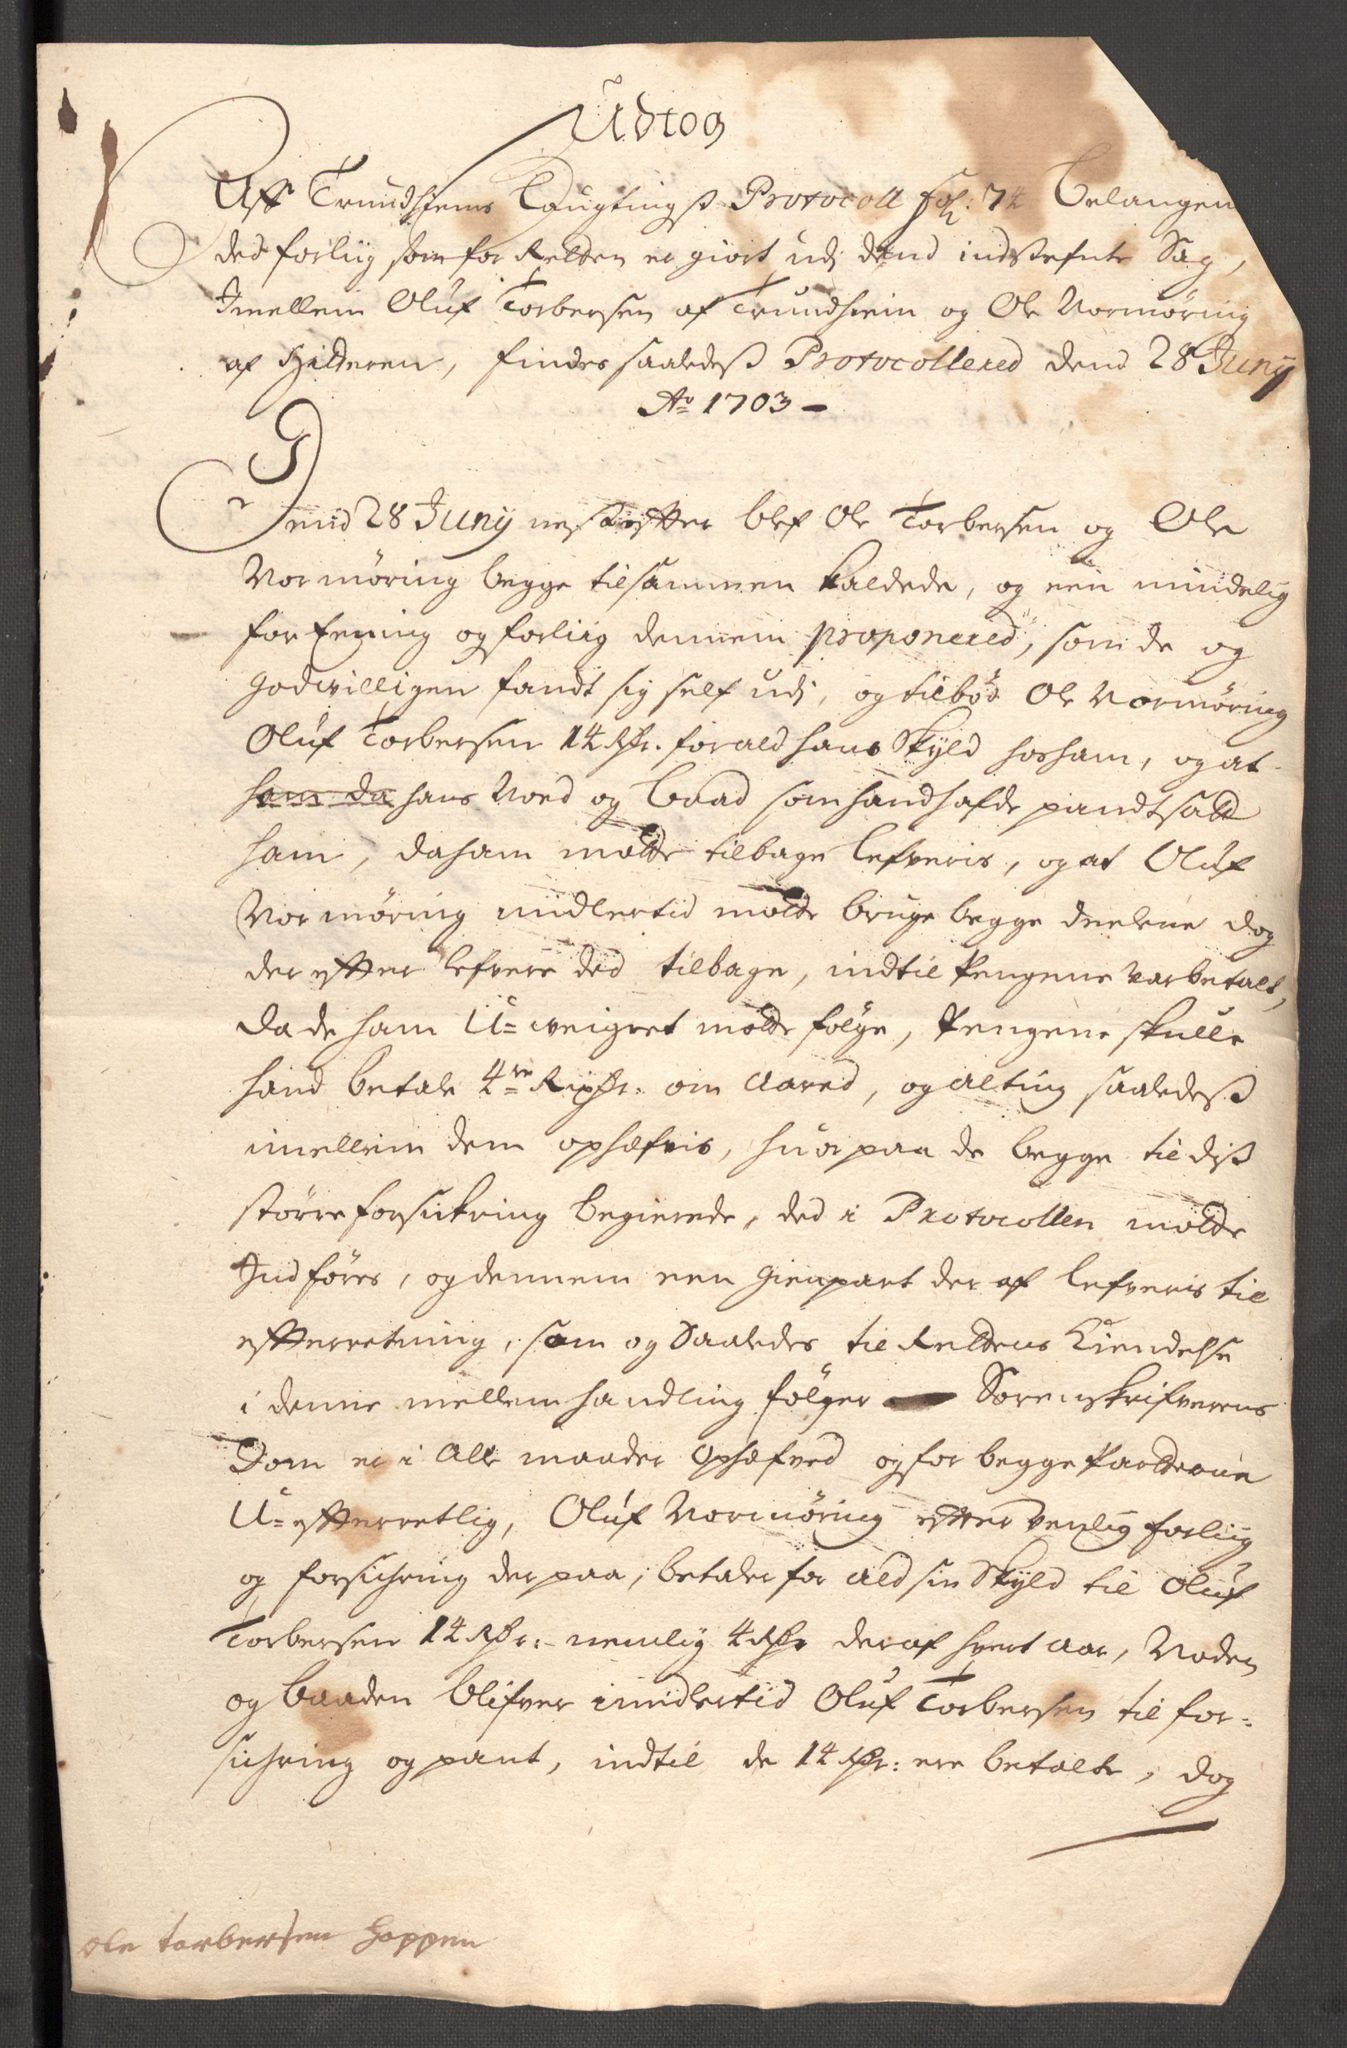 Udtog
Aff Trundhiems Laugtingß Protocoll fol: 74 belangen
ded forliig som for Retten er giort udj dend indstefnte Sag,
Imellem Oluf Torbersen af Trundhiem og Ole Vormøring
af Hitteren, findes saaledeß Protocollered dend 28 Juny
Ao 1703 -
Dend 28 Juny nest efter blef Ole Torbersen og Ole
Vormøring begge tilsammen kaldede, og een mindelig
forEening og forliig dennem proponered, som de og
godvilligen fandt sig self udj, og tilbød Ole Vormøring
Oluf Torbersen 14 Rdr. for ald hans Skyld hos ham, og at
ham da hans Noed og baad som hand hafde pandtsatt
ham, da ham motte tilbage lefveris, og at Oluf
Vormøring midlertid motte bruge begge deelene dog
der efter lefvere ded tilbage, indtil Pengene var betalt,
da de ham U=weigret motte følge, Pengene skulle
hand betale 4re Rixdr: om aared, og alting saaledeß
imellem dem ophefvis, huor paa de begge til diß
større forsickring begierede, ded i Protocollen motte
Indføres, og dennem een gienpart der af lefveris til
efterretning, som og Saaledes til Rettens Kiendelse
i denne mellemhandling følger - Sorenskrifverens
Dom er i alle maader ophefved og for begge Parterne
U=efterretlig, Oluf Vormøring efter venlig forliig
og forsichring der paa, betaler for ald sin Skyld til Oluf
Torbersen 14 Rdr: nemlig 4 Rdr deraf hvert aar, Noden
og baaden blifver imidlertid Oluf Torbersen til for=
sichring og pant, indtil de 14 Rdr: ere betalte, dog
ole torbersen hoppen